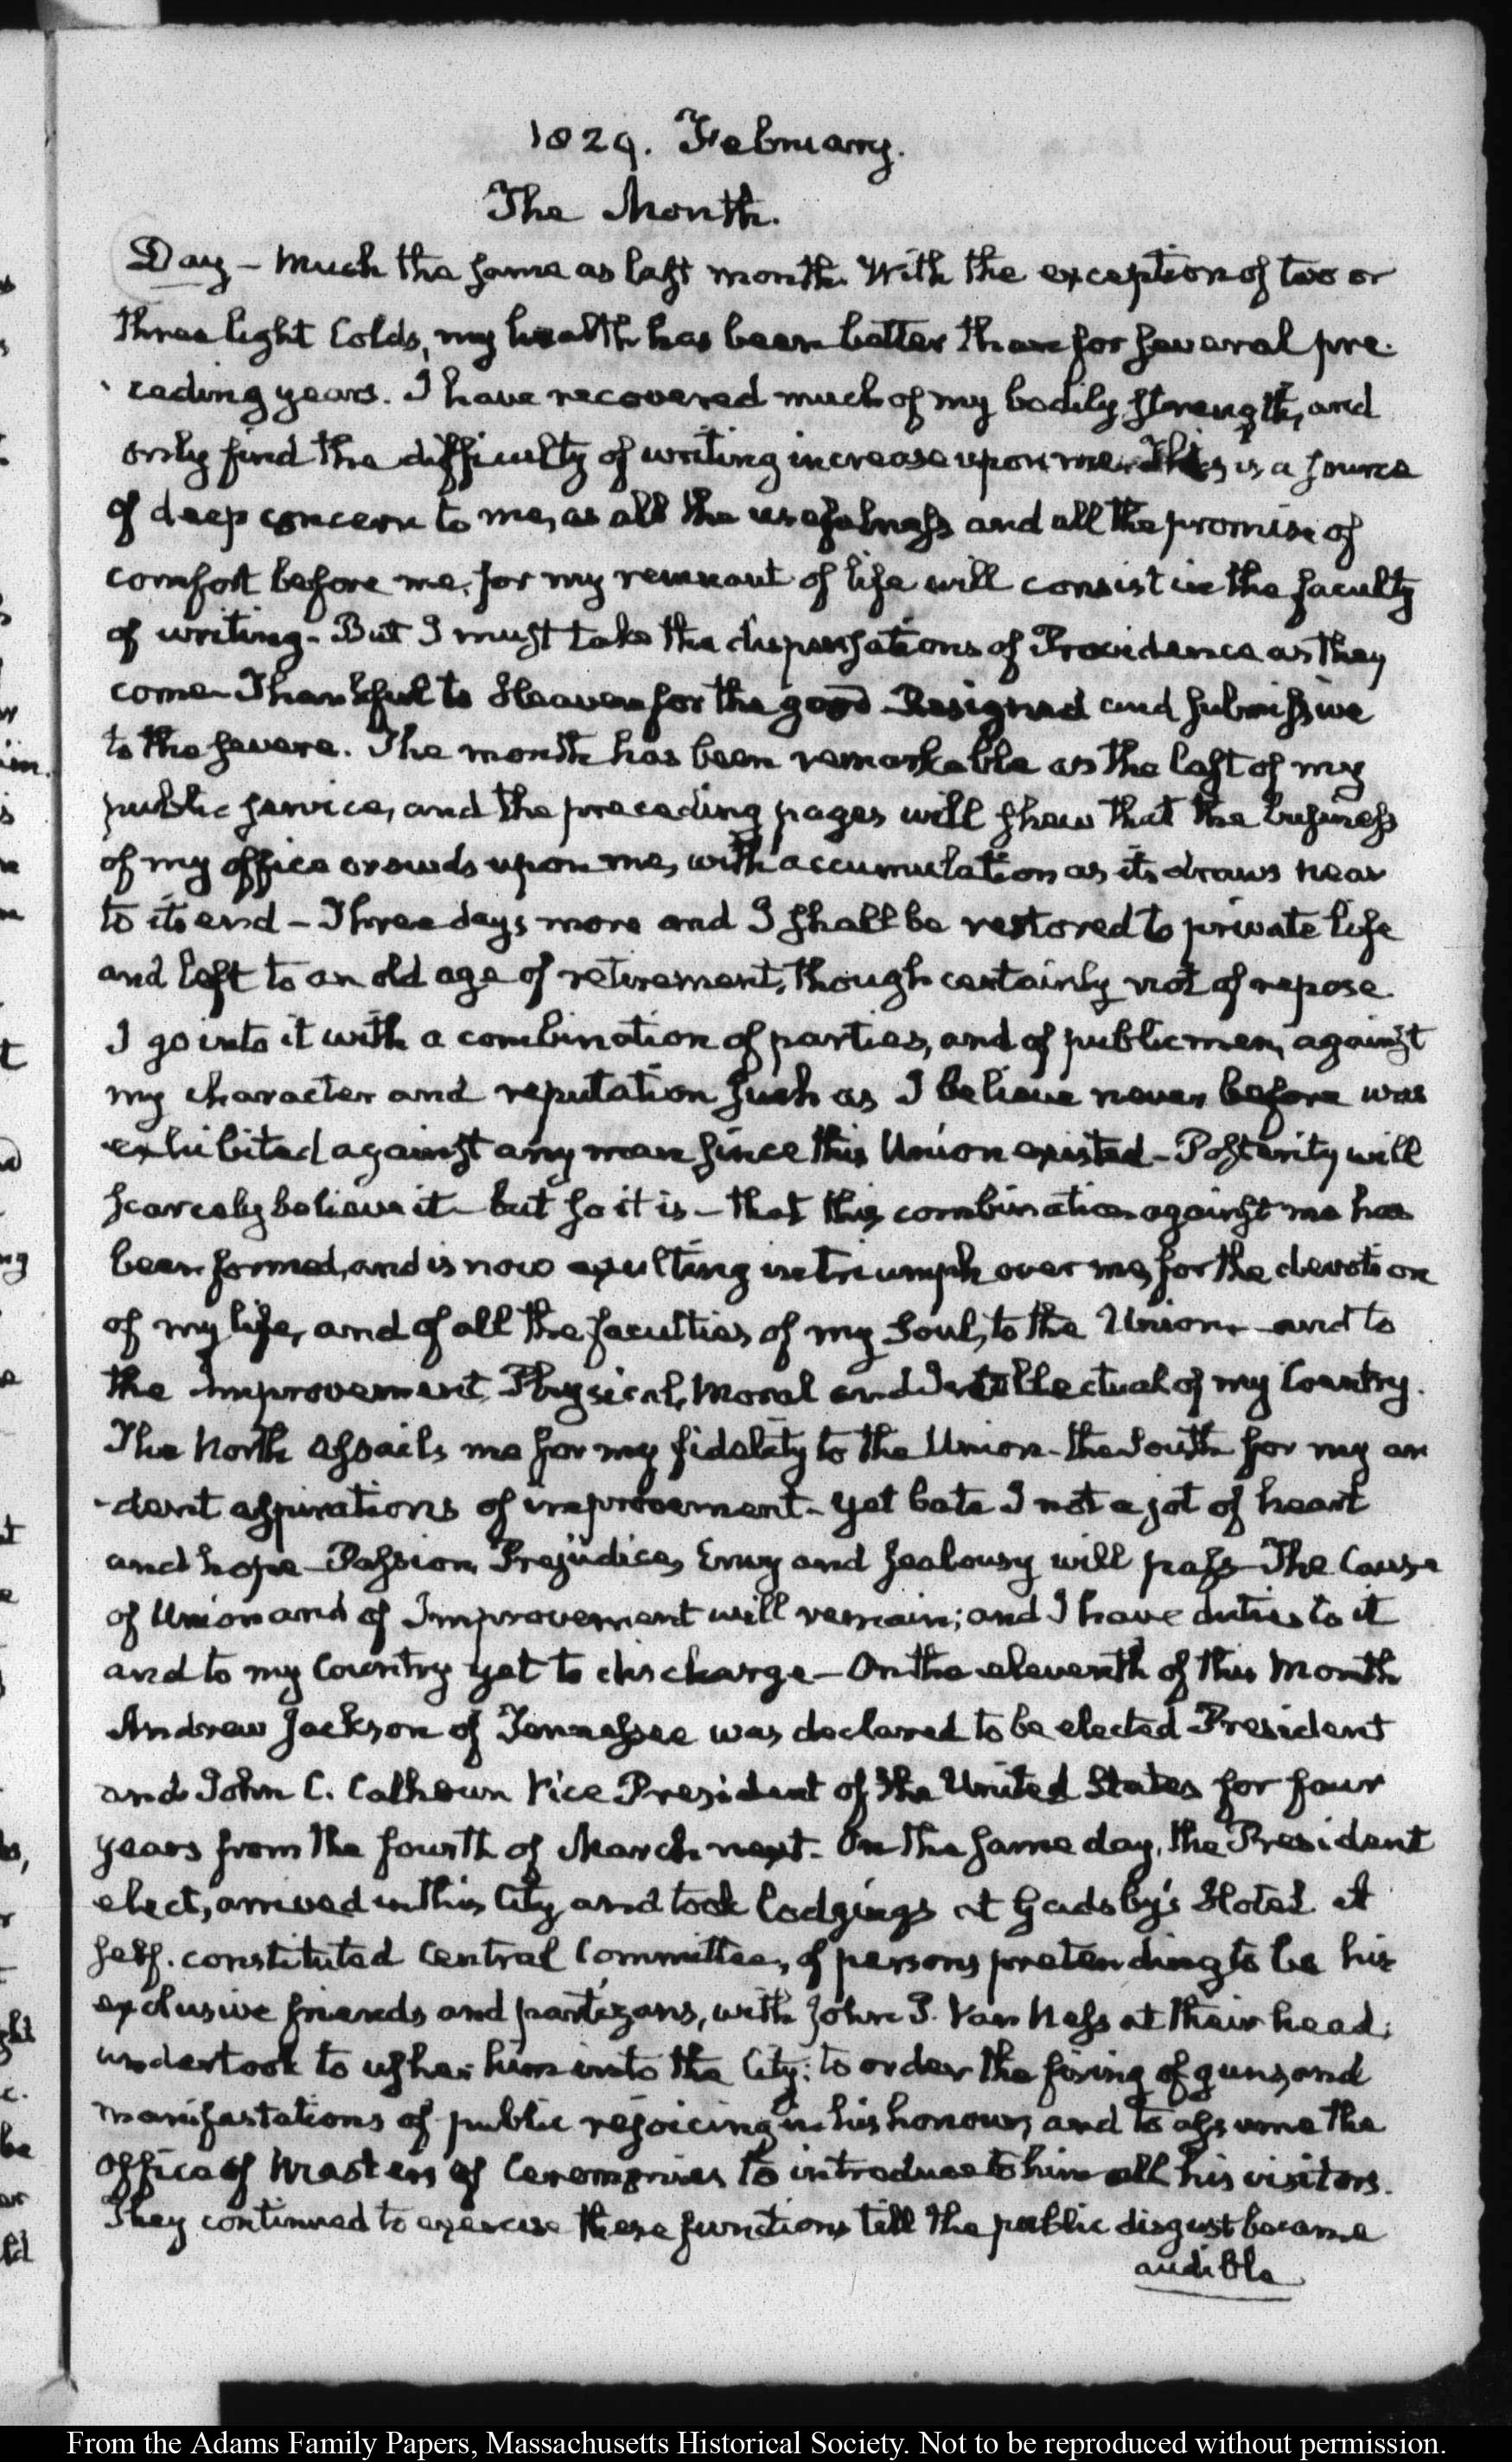 1829. February.
The Month.
Day – Much the same as last month. With the exception of two or
three light Colds, my health has been better than for several pre-
ceding years. I have recovered much of my bodily strength, and
only find the difficulty of writing increase upon me. This is a source
of deep concern to me, as all the usefulness and all the promise of
comfort before me, for my remnant of life will consist in the faculty
of writing – But I must take the dispensations of Providence as they
come – Thankful to Heaven for the good – Resigned and submissive
to the severe. The month has been remarkable as the last of my
public service, and the preceding pages will shew that the business
of my office crowds upon me, with accumulation as it draws near
to its end – Three days more and I shall be restored to private life
and left to an old age of retirement, though certainly not of repose.
I go into it with a combination of parties, and of public men, against
my character and reputation such as I believe never before was
exhibited against any man since this Union existed – Posterity will
scarcely believe it – but so it is – that this combination against me has
been formed, and is now exulting in triumph over me, for the devotion
of my life, and of all the faculties of my Soul, to the Union, and to
the Improvement, Physical, Moral and Intellectual of my Country.
The North assails me for my fidelity to the Union – the South for my ar
-dent aspirations of improvement – Yet bate I not a jot of heart
and hope – Passion, Prejudice, Envy and Jealousy will pass – The Cause
of Union and of Improvement will remain; and I have duties to it
and to my Country yet to discharge – On the eleventh of this Month
Andrew Jackson of Tennessee was declared to be elected President
and John C. Calhoun Vice President of the United States for four
years from the fourth of March next – On the same day, the President
elect, arrived in this City and took lodgings at Gadsby's Hotel. A
self-constituted Central Committee, of persons pretending to be his
exclusive friends and partizans, with John P. Van Ness at their head;
undertook to usher him into the City; to order the firing of guns, and
manifestations of public rejoicing in his honour, and to assume the
office of Masters of Ceremonies to introduce to him all his visitors.
They continued to exercise these functions till the public disgust became
audible
From the Adams Family Papers, Massachusetts Historical Society. Not to be reproduced without permission.